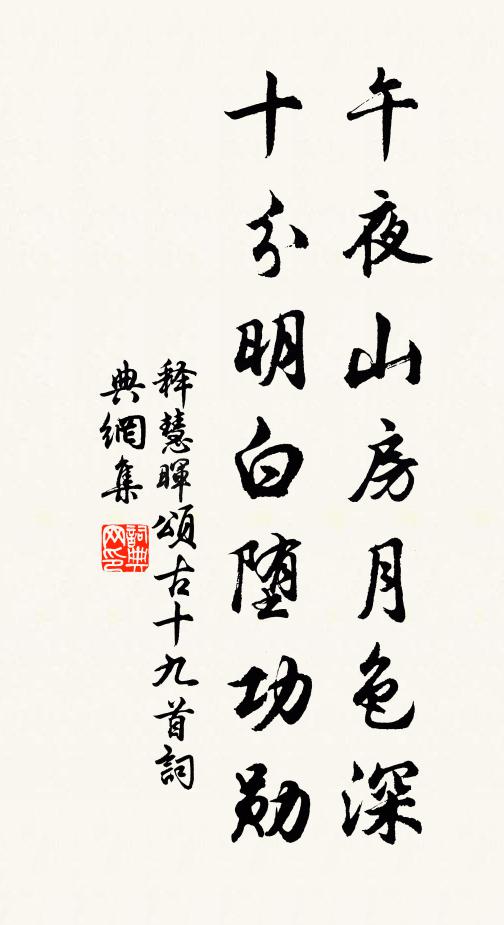 午夜山房月色深
十分明白堕功勋
释慧暉頌古十九首詞
典網集
詞典网印